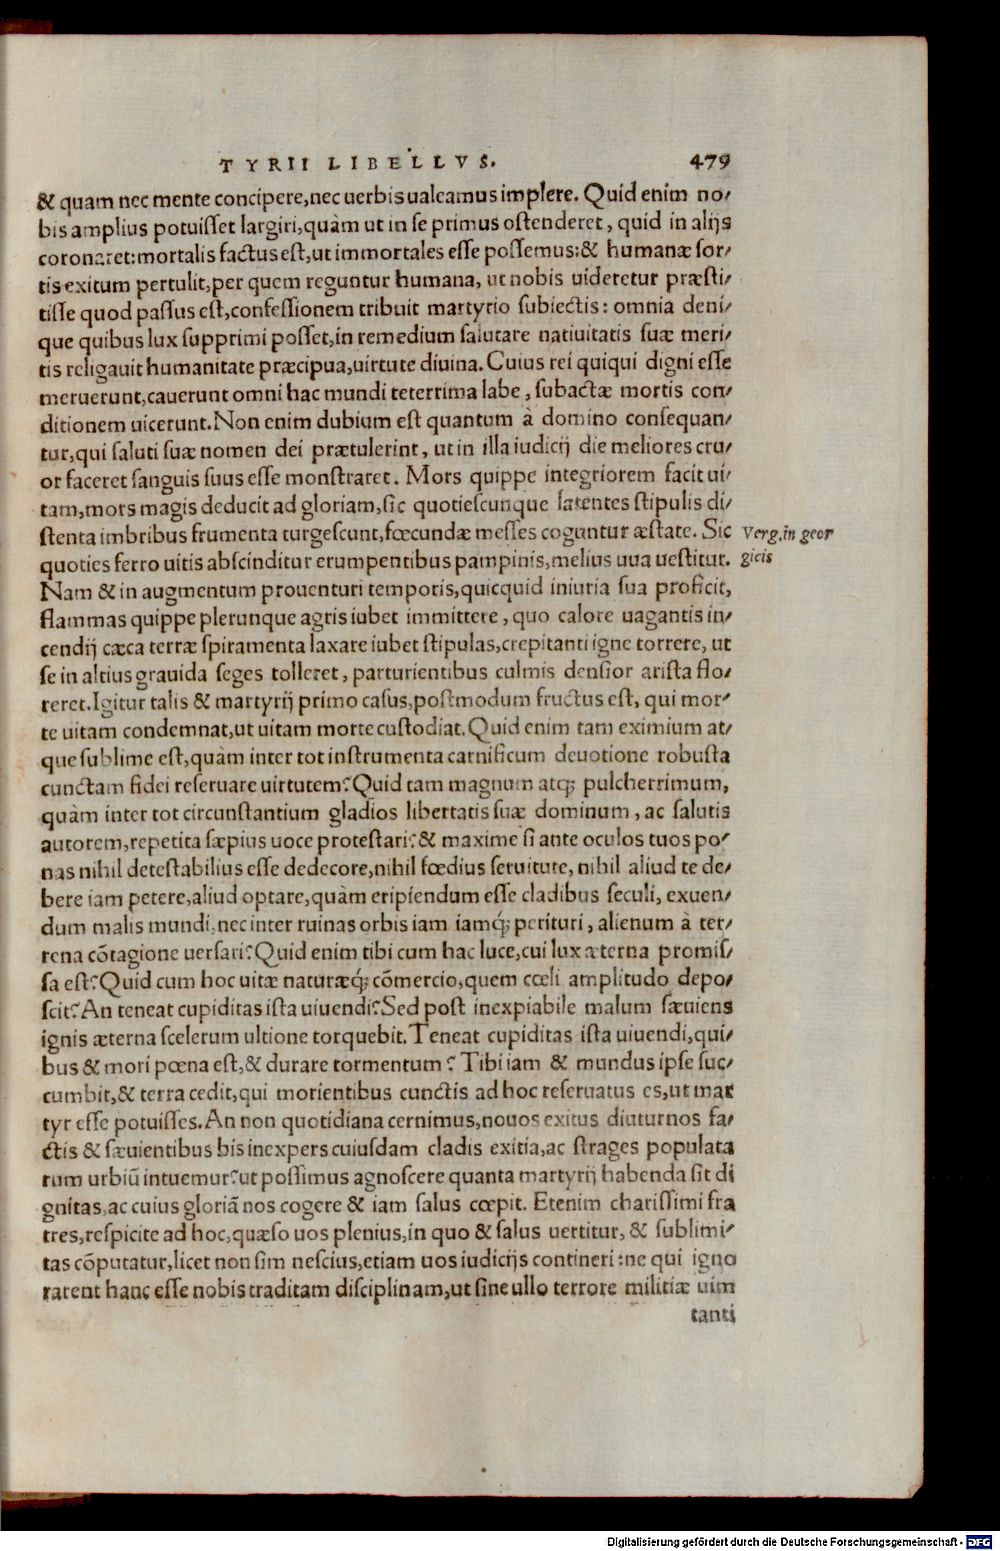 TYRII LIBELLVS. 479
& quam nec mente concipere, nec uerbis ualeamus implere. Quid enim no/
bis amplius potuisset largiri, quàm ut in se primus ostenderet, quid in alijs
coronaret: mortalis factus est, ut immortales esse possemus: & humanæ sor/
tis exitum pertulit, per quem reguntur humana, ut nobis uideretur præsti/
tisse quod passus est, confessionem tribuit martyrio subiectis: omnia deni/
que quibus lux supprimi posset, in remedium salutare natiuitatis suæ meri/
tis religauit humanitate præcipua, uirtute diuina. Cuius rei quiqui digni esse
meruerunt, cauerunt omni hac mundi teterrima labe, subactæ mortis con/
ditionem uicerunt. Non enim dubium est quantum à domino consequan/
tur, qui saluti suæ nomen dei prætulerint, ut in illa iudicij die meliores cru/
or faceret sanguis suus esse monstraret. Mors quippe integriorem facit ui/
tam, mors magis deducit ad gloriam, sic quotiescunque latentes stipulis di/
stenta imbribus frumenta turgescunt, fœcundæ messes coguntur æstate. Sic
Verg. in geor
quoties ferro uitis abscinditur erumpentibus pampinis, melius uua uestitur.
gicis
Nam & in augmentum prouenturi temporis, quicquid iniuria sua proficit,
flammas quippe plerunque agris iubet immittere, quo calore uagantis in/
cendij cæca terræ spiramenta laxare iubet stipulas, crepitanti igne torrere, ut
se in altius grauida seges tolleret, parturientibus culmis densior arista flo/
reret. Igitur talis & martyrij primo casus, postmodum fructus est, qui mor/
te uitam condemnat, ut uitam morte custodiat. Quid enim tam eximium at/
que sublime est, quàm inter tot instrumenta carnificum deuotione robusta
cunctam fidei reseruare uirtutem? Quid tam magnum atq; pulcherrimum,
quàm inter tot circunstantium gladios libertatis suæ dominum, ac salutis
autorem, repetita sæpius uoce protestari? & maxime si ante oculos tuos po/
nas nihil detestabilius esse dedecore, nihil fœdius seruiture, nihil aliud te de/
bere iam petere, aliud optare, quàm eripiendum esse cladibus seculi, exuen/
dum malis mundi, nec inter ruinas orbis iam iamq; perituri, alienum à ter/
rena cõtagione uersari? Quid enim tibi cum hac luce, cui lux æterna promis/
sa est? Quid cum hoc uitæ naturæq; cõmercio, quem cœli amplitudo depo/
scit? An teneat cupiditas ista uiuendi? Sed post inexpiabile malum sæuiens
ignis æterna scelerum ultione torquebit. Teneat cupiditas ista uiuendi, qui/
bus & mori pœna est, & durare tormentum? Tibi iam & mundus ipse suc/
cumbit, & terra cedit, qui morientibus cunctis ad hoc reseruatus es, ut mar
tyr esse potuisses. An non quotidiana cernimus, nouos exitus diuturnos fa/
ctis & sæuientibus bis inexpers cuiusdam cladis exitia, ac strages populata
rum urbiũ intuemur? ut possimus agnoscere quanta martyrij habenda sit di
gnitas, ac cuius gloriã nos cogere & iam salus cœpit. Etenim charissimi fra
tres, respicite ad hoc, quæso uos plenius, in quo & salus uertitur, & sublimi/
tas cõputatur, licet non sim nescius, etiam uos iudicijs contineri: ne qui igno
rarent hanc esse nobis traditam disciplinam, ut sine ullo terrore militiæ uim
tanti
Digitalisierung gefördert durch die Deutsche Forschungsgemeinschaft - DFG